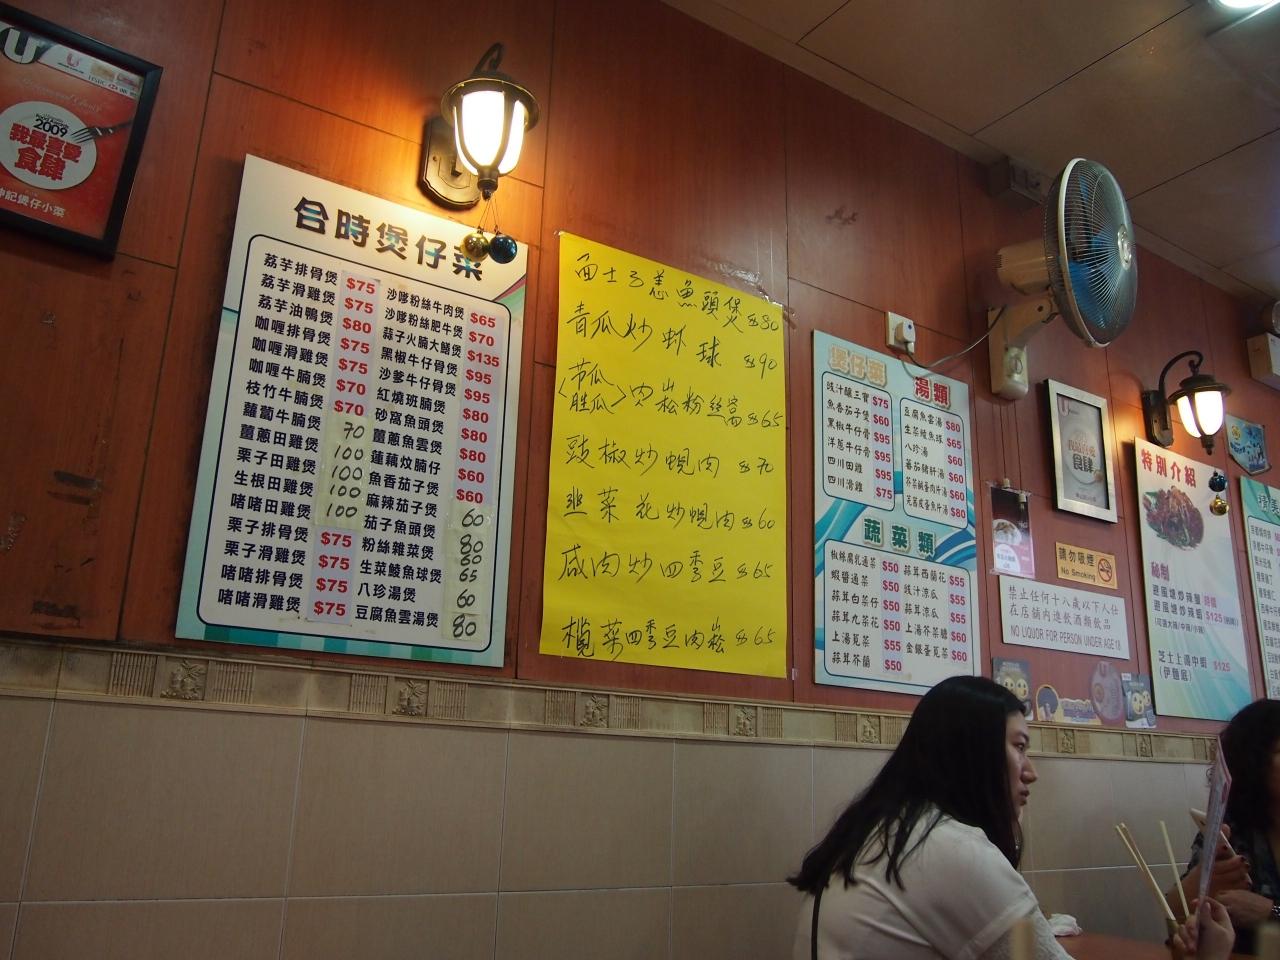 2009
我最喜愛
食肆
坤記煲仔小菜
合時煲仔菜
荔芋排骨煲 $75
荔芋滑雞煲 $75
荔芋油鴨煲 $80
咖喱排骨煲 $75
咖喱滑雞煲 $75
咖喱牛腩煲 $70
枝竹牛腩煲 $70
蘿蔔牛腩煲 70
薑蔥田雞煲 100
栗子田雞煲 100
生根田雞煲 100
啫啫田雞煲 100
栗子排骨煲 $75
栗子滑雞煲 $75
啫啫排骨煲 $75
啫啫滑雞煲 $75
沙嗲粉絲牛肉煲 $65
沙嗲粉絲肥牛煲 $70
蒜子火腩大鱔煲 $135
黑椒牛仔骨煲 $95
沙爹牛仔骨煲 $95
紅燒班腩煲 $80
砂窩魚頭煲 $80
薑蔥魚雲煲 $80
蓮藕炆腩仔 $60
魚香茄子煲 $60
麻辣茄子煲 60
茄子魚頭煲 80
粉絲雜菜煲 60
生菜鯪魚球煲 65
八珍湯煲 60
豆腐魚雲湯煲 80
面士子羗魚頭煲 $80
青瓜炒虾球 $90
(节瓜
胜瓜)肉崧粉丝窩 $65
豉椒炒蜆肉 $70
韮菜花炒蜆肉 $60
咸肉炒四季豆 $65
欖菜四季豆肉崧 $65
煲仔菜
豉汁釀三寶 $75
魚香茄子煲 $60
黑椒牛仔骨 $95
洋蔥牛仔骨 $95
四川田雞 $95
四川滑雞 $75
湯類
豆腐魚雲湯 $80
生菜鯪魚球 $65
八珍湯 $60
蕃茄豬肝湯 $60
芥菜鹹蛋肉片湯 $60
芫茜皮蛋魚片湯 $80
蔬菜類
椒絲腐乳通菜 $50
蝦醬通菜 $50
蒜茸白菜仔 $50
蒜茸九菜花 $50
上湯莧菜 $55
蒜茸芥蘭 $50
蒜茸西蘭花 $55
豉汁涼瓜 $55
蒜茸涼瓜 $55
上湯芥菜膽 $60
金銀蛋莧菜 $60
食肆
請勿吸煙
No Smoking
禁止任何十八歲以下人仕
在店舖內進飲酒類飲品
NO LIQUOR FOR PERSON UNDER AGE 18
特別介紹
秘制
避風塘炒辣蟹 時價
避風塘炒辣蝦 $125
芝士上湯中蝦 $125
(伊麵底)